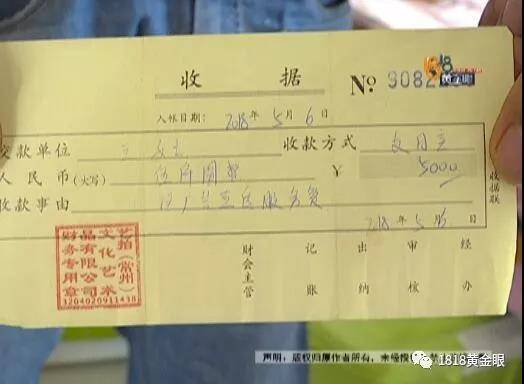 收 据 No 9082
18
黄金眼
入帐日期: 2018 年 5 月 6 日
交款单位 收款方式
人民币(大写) 伍仟圆整 ¥ 5000
收款事由 服务费
2018年5月6日
收据联
艺拍(常州)
文化艺术
品有限公司
财务专用章
1204020911438
财会主管 记账 出纳 审核 经办
声明:版权归原作者所有,未经授
1818黄金眼